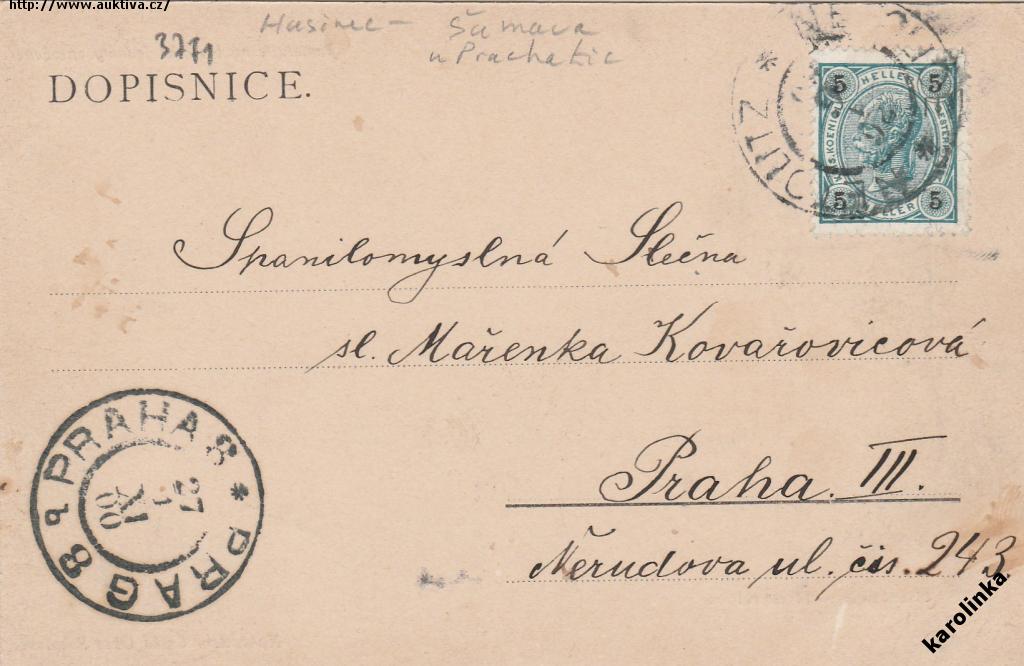 http://www.auktiva.cz/
Husinec - Šumava
u Prachatic
3771
DOPISNICE.
5 HELLER 5
5 HELLER 5
Spanilomyslná Slečna
sl. Mařenka Kovařovicová
Praha. III.
Nerudova ul. čís. 243
PRAHA 8 * PRAG 8
27
IX
00
karolinka